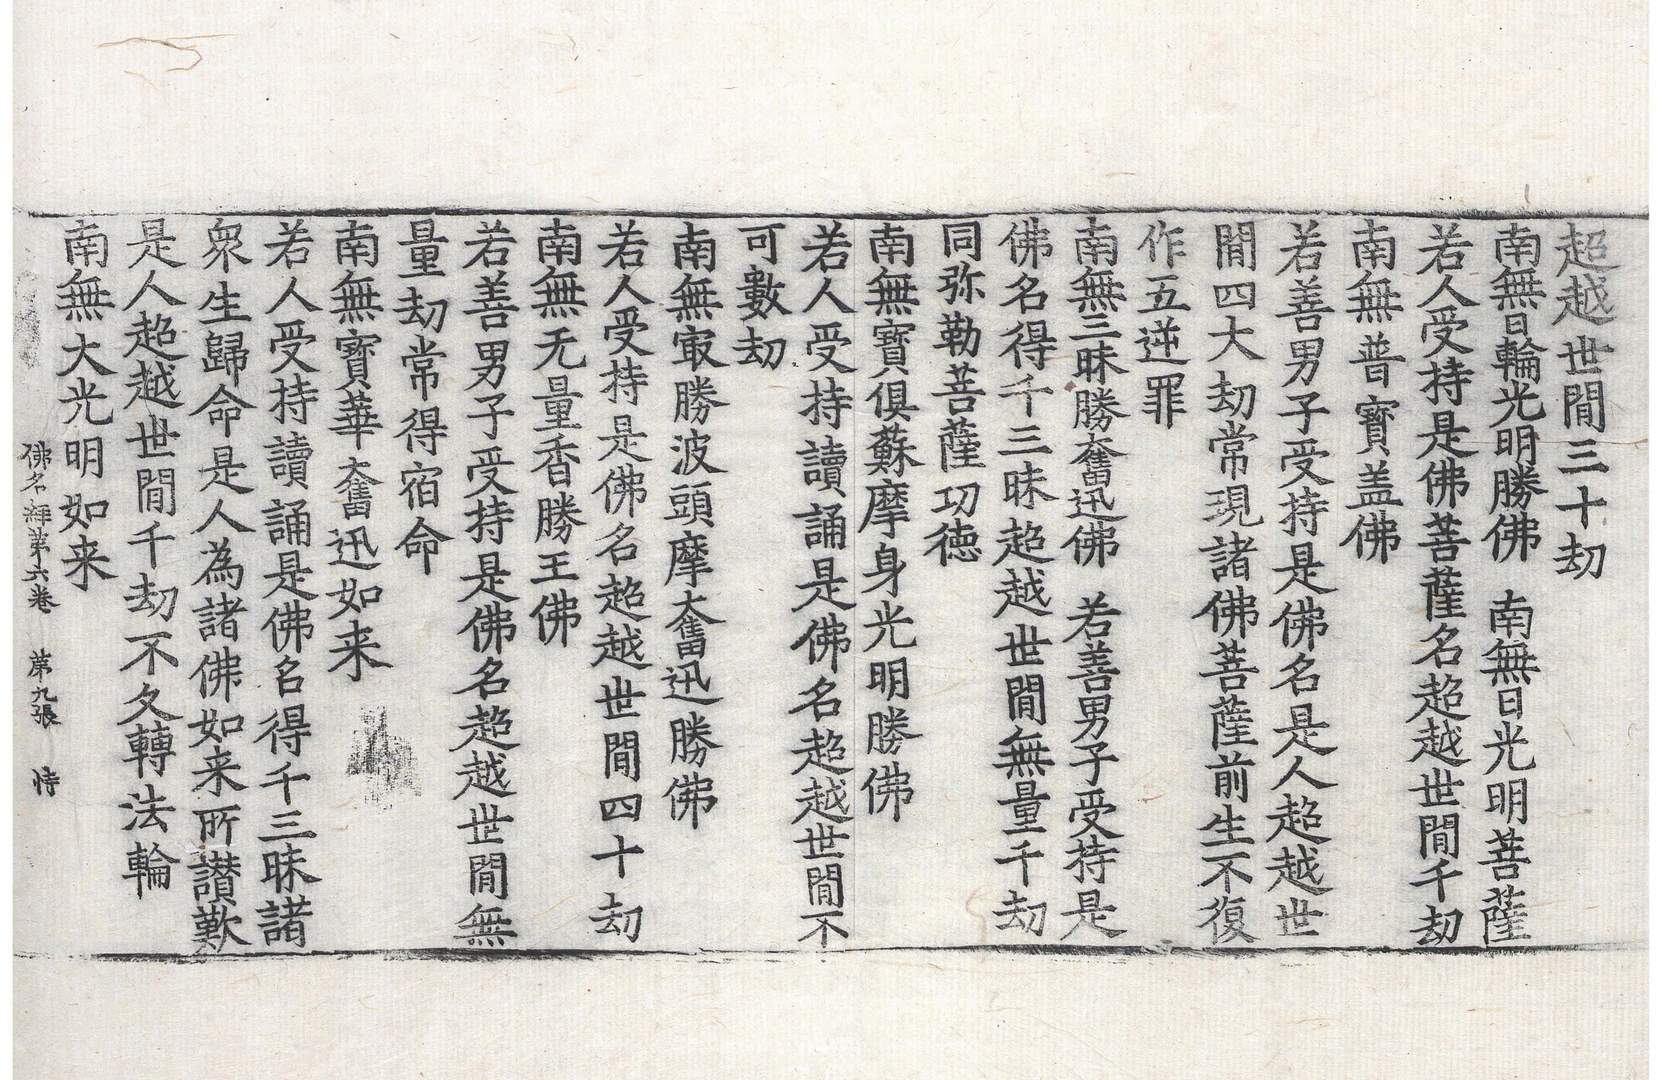 超越世閒三十劫
南無日輪光明勝佛　南無日光明菩薩
若人受持是佛菩薩名超越世閒千劫
南無普寶盖佛
若善男子受持是佛名是人超越世
閒四大劫常現諸佛菩薩前生不復
作五逆罪
南無三昧勝奮迅佛　若善男子受持是
佛名得千三昧超越世閒無量千劫
同弥勒菩薩功徳
南無寶俱蘇摩身光明勝佛
若人受持讀誦是佛名超越世閒不
可數劫
南無㝡勝波頭摩奮迅勝佛
若人受持是佛名超越世閒四十劫
南無无量香勝王佛
若善男子受持是佛名超越世閒無
量劫常得宿命
南無寶華奮迅如来
若人受持讀誦是佛名得千三昧諸
衆生歸命是人為諸佛如来所讃歎
是人超越世閒千劫不久轉法輪
南無大光明如来
佛名経第六卷　第九張　恃